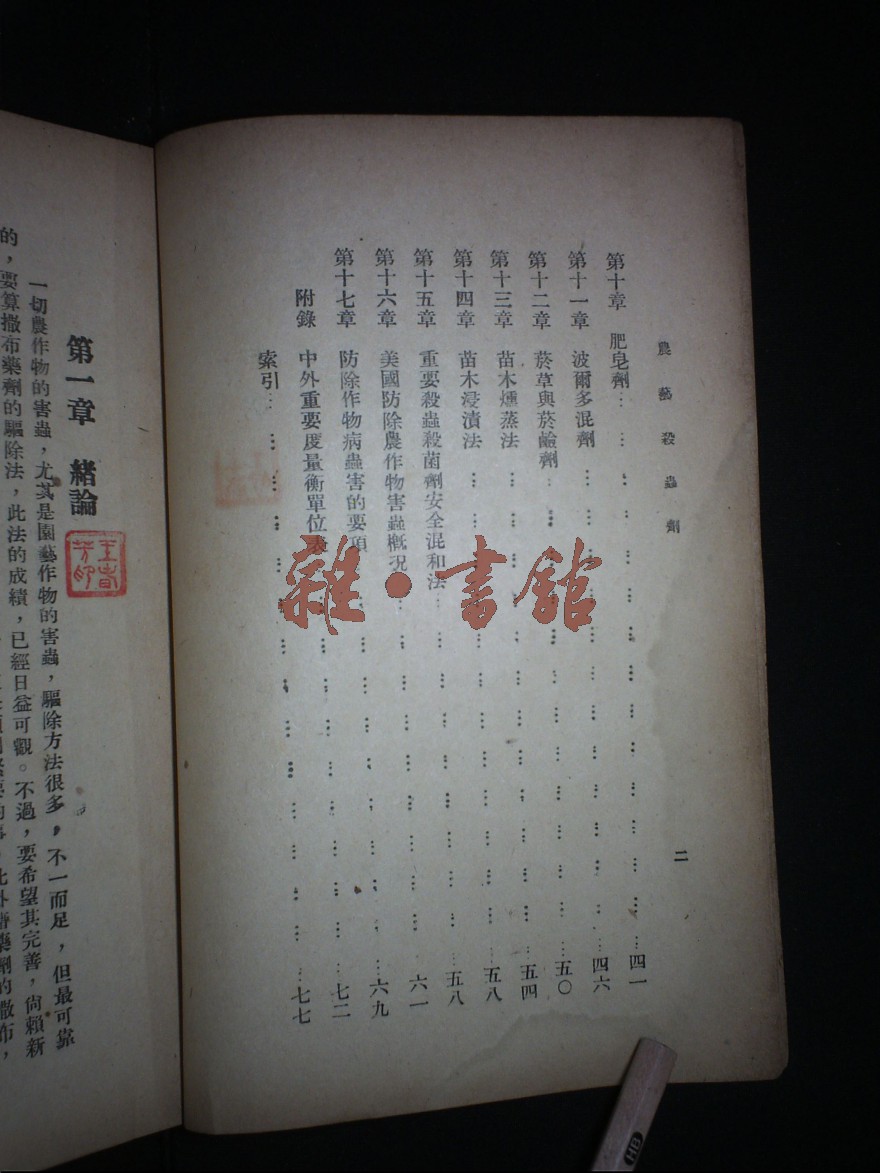 農藝殺蟲劑
二
第十章 肥皂劑……四一
第十一章 波爾多混劑……四六
第十二章 菸草與菸鹼劑……五〇
第十三章 苗木燻蒸法……五四
第十四章 苗木浸漬法……五八
第十五章 重要殺蟲殺菌劑安全混和法……五八
第十六章 美國防除農作物害蟲概况……六一
第十七章 防除作物病蟲害的要項……六九
附錄 中外重要度量衡單位表……七二
索引……七七
雜·書館
第一章 緒論
一切農作物的害蟲，尤其是園藝作物的害蟲，驅除方法很多，不一而足，但最可靠
的，要算撒布藥劑的驅除法，此法的成績，已經日益可觀。不過，要希望其完善，尙賴新
HB